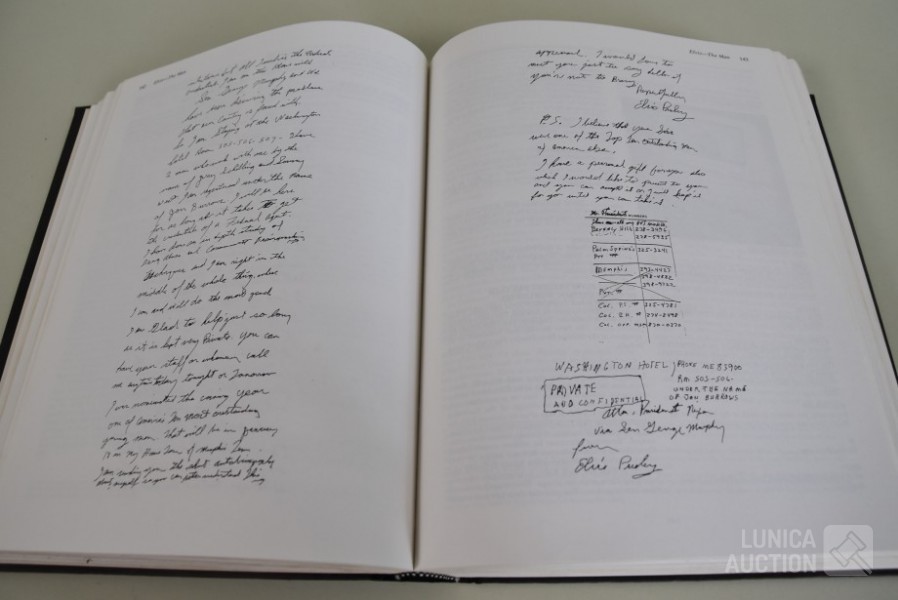 Elvis—The Man
Sen George Murphy and We
have been discussing the problems
that our Country is faced with.
So I am Staying at the Washington
hotel Room 505-506-507. I have
2 men who work with me by the
name of Jerry Schilling and Sonny
West I am registered under the name
of Jon Burrows. I will be here
for as long as it takes to get
the credentials of a Federal Agent.
I have done an in depth study of
Drug Abuse and Communist Brainwashing
Techniques and I am right in the
middle of the whole thing, where
I can and will do the most good
I am Glad to help just so long
as it is kept very Private. You can
have your staff or whomever call
me anytime today tonight or Tomorrow
I was nominated the coming year
one of America's Ten most outstanding
young men. That will be in January
18 in my Home Town of Memphis Tenn.
I am sending you the short autobiography
about myself so you can better understand this
Elvis—The Man
approach. I would love to
meet you just to say hello if
you're not to Busy.
Respectfully
Elvis Presley
P.S. I believe that you Sir
were one of the Top Ten Outstanding Men
of America also.
I have a personal gift for you also
which I would like to present to you
and you can accept it or I will keep it
for you until you can take it.
Mr. President
Beverly Hills
Palm Springs
Memphis
Col. P.S. #
Col. B.H. #
Col. off
WASHINGTON HOTEL, PHONE ME 85900
RM 505-506
UNDER THE NAME
OF JON BURROWS
PRIVATE
AND CONFIDENTIAL
Attn. President Nixon
via Sen George Murphy
from
Elvis Presley
LUNICA
AUCTION